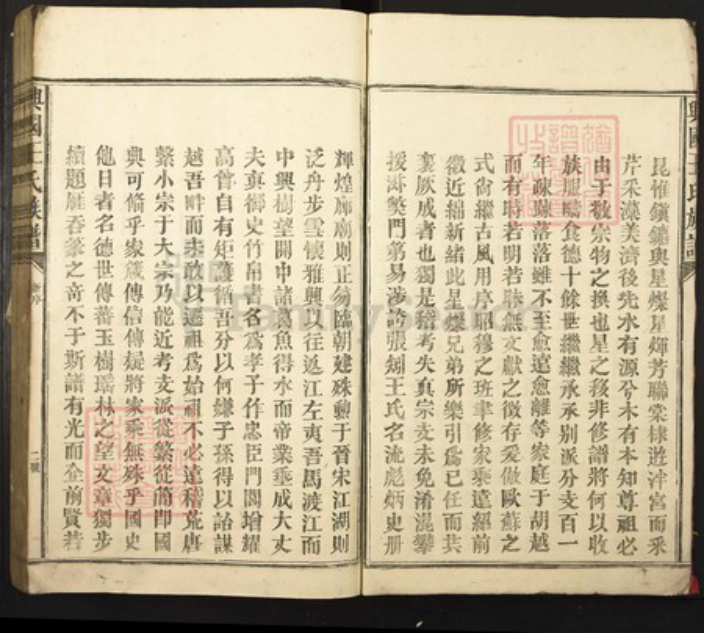 興國王氏族譜
昆惟鎮鑣與星燦星輝芳聯棠棣遊泮宮而采
芹采藻美濟後先水有源兮木有本知尊祖必
由于敬宗物之換也星之移非修譜將何以收
族服疇食德十餘世繼繼承承别派分支百一
年疎疎落落雖不至愈遠愈離等家庭于胡越
而有時若明若昧無文獻之徵存爰倣歐蘇之
式尚繼古風用序昭穆之班聿修家乘遠紹前
徽近綿新緒此星燦兄弟所樂引為己任而共
襄厥成者也獨是稽考失真宗支未免淆混攀
援掛獎門第易涉誇張矧王氏名流彪炳史册
輝煌廊廟則正笏臨朝建殊勳于晉宋江湖則
泛舟步雪懷雅興以往返江左夷吾馬渡江而
中興樹望關中諸葛魚得水而帝業垂成大丈
夫真御史竹帛書名為孝子作忠臣門閭增耀
高曾自有矩矱循吾分以何嫌子孫得以詒謀
越吾畔而未敢以遷祖為始祖不必遠稽荒唐
繫小宗于大宗乃能近考支派從繁從簡即國
典可脩乎家箴傳信傳疑將家乘無殊乎國史
他日者名德世傳蕃玉樹瑶林之望文章獨步
續題雁吞篆之奇不于斯譜有光而全前賢若
興國王氏族譜
新序
二號